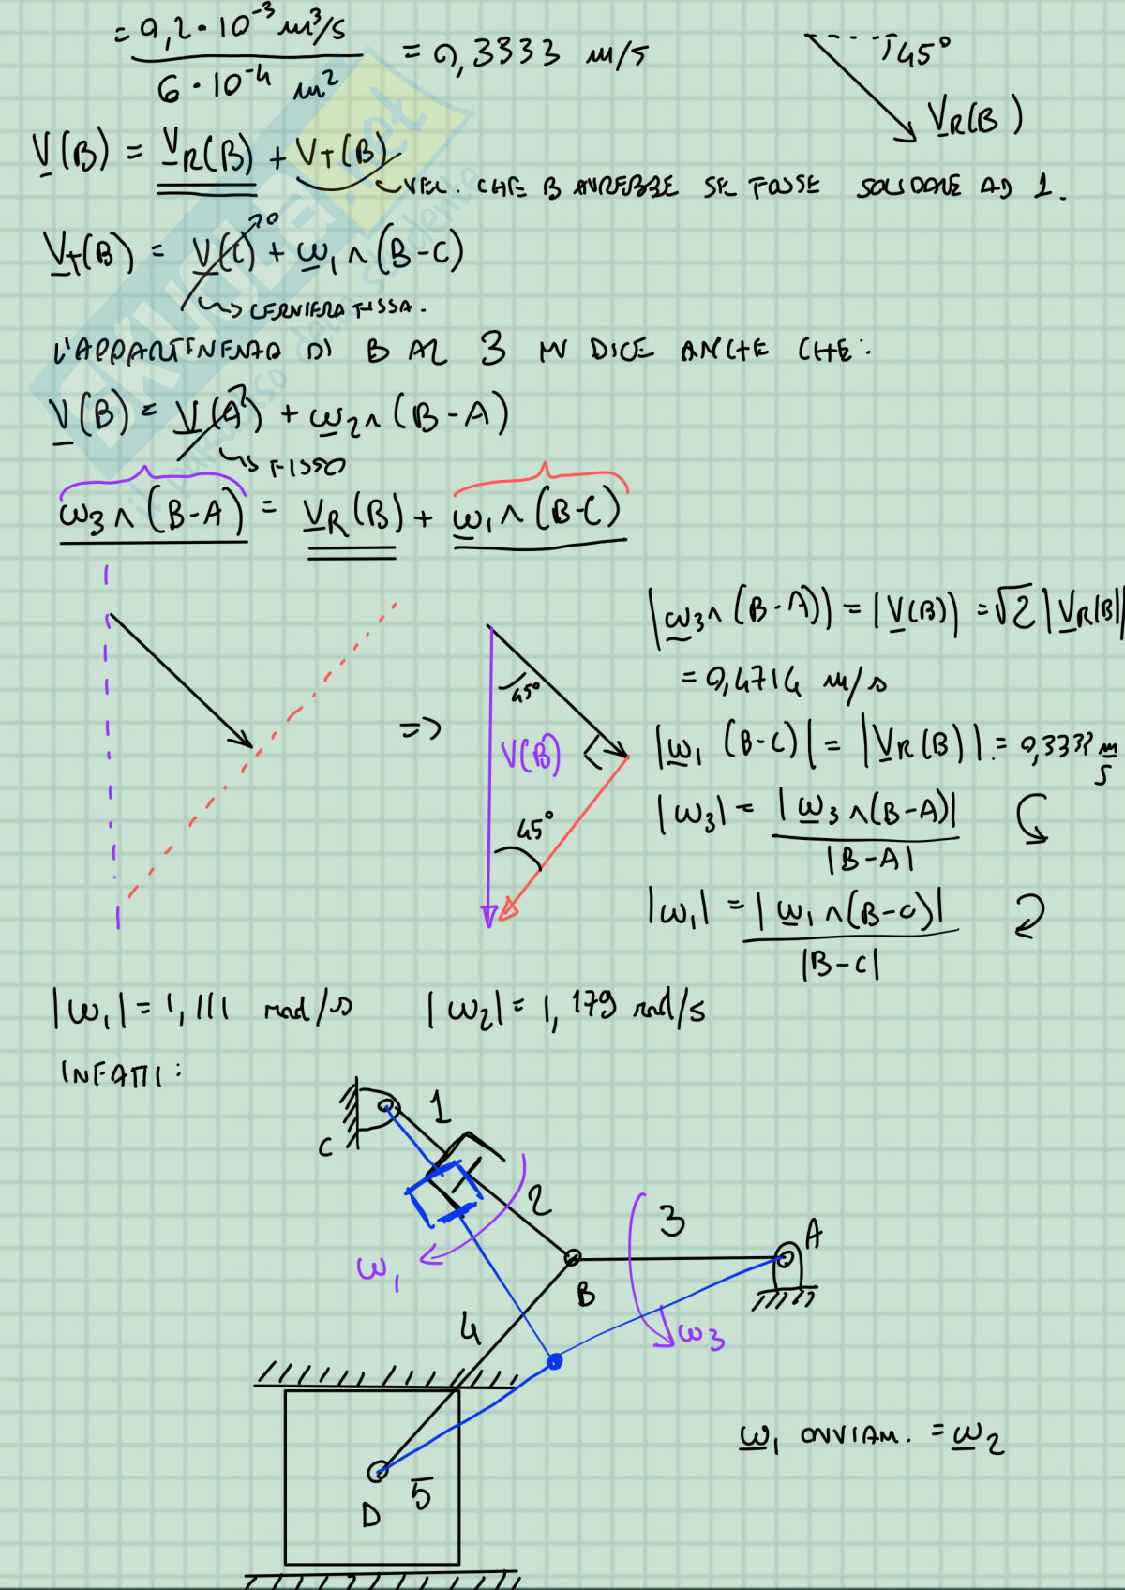 = 0,2 · 10⁻³ m³/s / 6 · 10⁻⁴ m² = 0,3333 m/s
45°
V_R(B)
V(B) = V_R(B) + V_T(B)
VEL. CHE B AVREBBE SE FOSSE SOLIDALE AD 1.
V_T(B) = V(C) → 0 + ω₁ ∧ (B-C)
↳ CERNIERA FISSA.
L'APPARTENENZA DI B AL 3 MI DICE ANCHE CHE:
V(B) = V(A) + ω₂ ∧ (B-A)
↳ FISSO
ω₃ ∧ (B-A) = V_R(B) + ω₁ ∧ (B-C)
|ω₃ ∧ (B-A)| = |V(B)| = √2 |V_R(B)|
= 0,4714 m/s
=>
45°
V(B)
45°
|ω₁ (B-C)| = |V_R(B)| = 0,3333 m/s
|ω₃| = |ω₃ ∧ (B-A)| / |B-A|
|ω₁| = |ω₁ ∧ (B-C)| / |B-C|
|ω₁| = 1,111 rad/s |ω₂| = 1,179 rad/s
INFATTI:
C
1
2
3
A
ω₁
B
4
ω₃
D
5
ω₁ OVVIAM. = ω₂